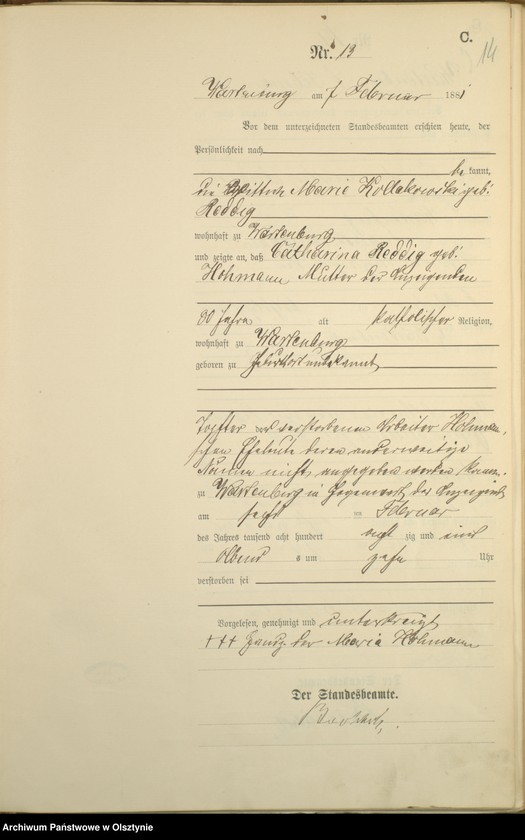 C.
14
Nr. 13
Wartenburg am 7 Februar 1881
Vor dem unterzeichneten Standesbeamten erschien heute, der
Persönlichkeit nach
be kannt,
die Wittwe Marie Kollakowski geb:
Reddig
wohnhaft zu Wartenburg
und zeigte an, daß Catharina Reddig geb:
Hohmann Mutter der Anzeigenden
80 Jahre alt katholischer Religion,
wohnhaft zu Wartenburg
geboren zu Geburtsort unbekannt
Tochter der verstorbenen Arbeiter Hohmann-
schen Eheleute deren anderweitige
Namen nicht angegeben werden kann.
zu Wartenburg in Gegenwart der Anzeigend
am Februar
des Jahres tausend acht hundert acht zig und eins
Abend s um zehn Uhr
verstorben sei
Vorgelesen, genehmigt und unterkreuzt
+++ der Maria Hohmann
Der Standesbeamte.
Archiwum Państwowe w Olsztynie